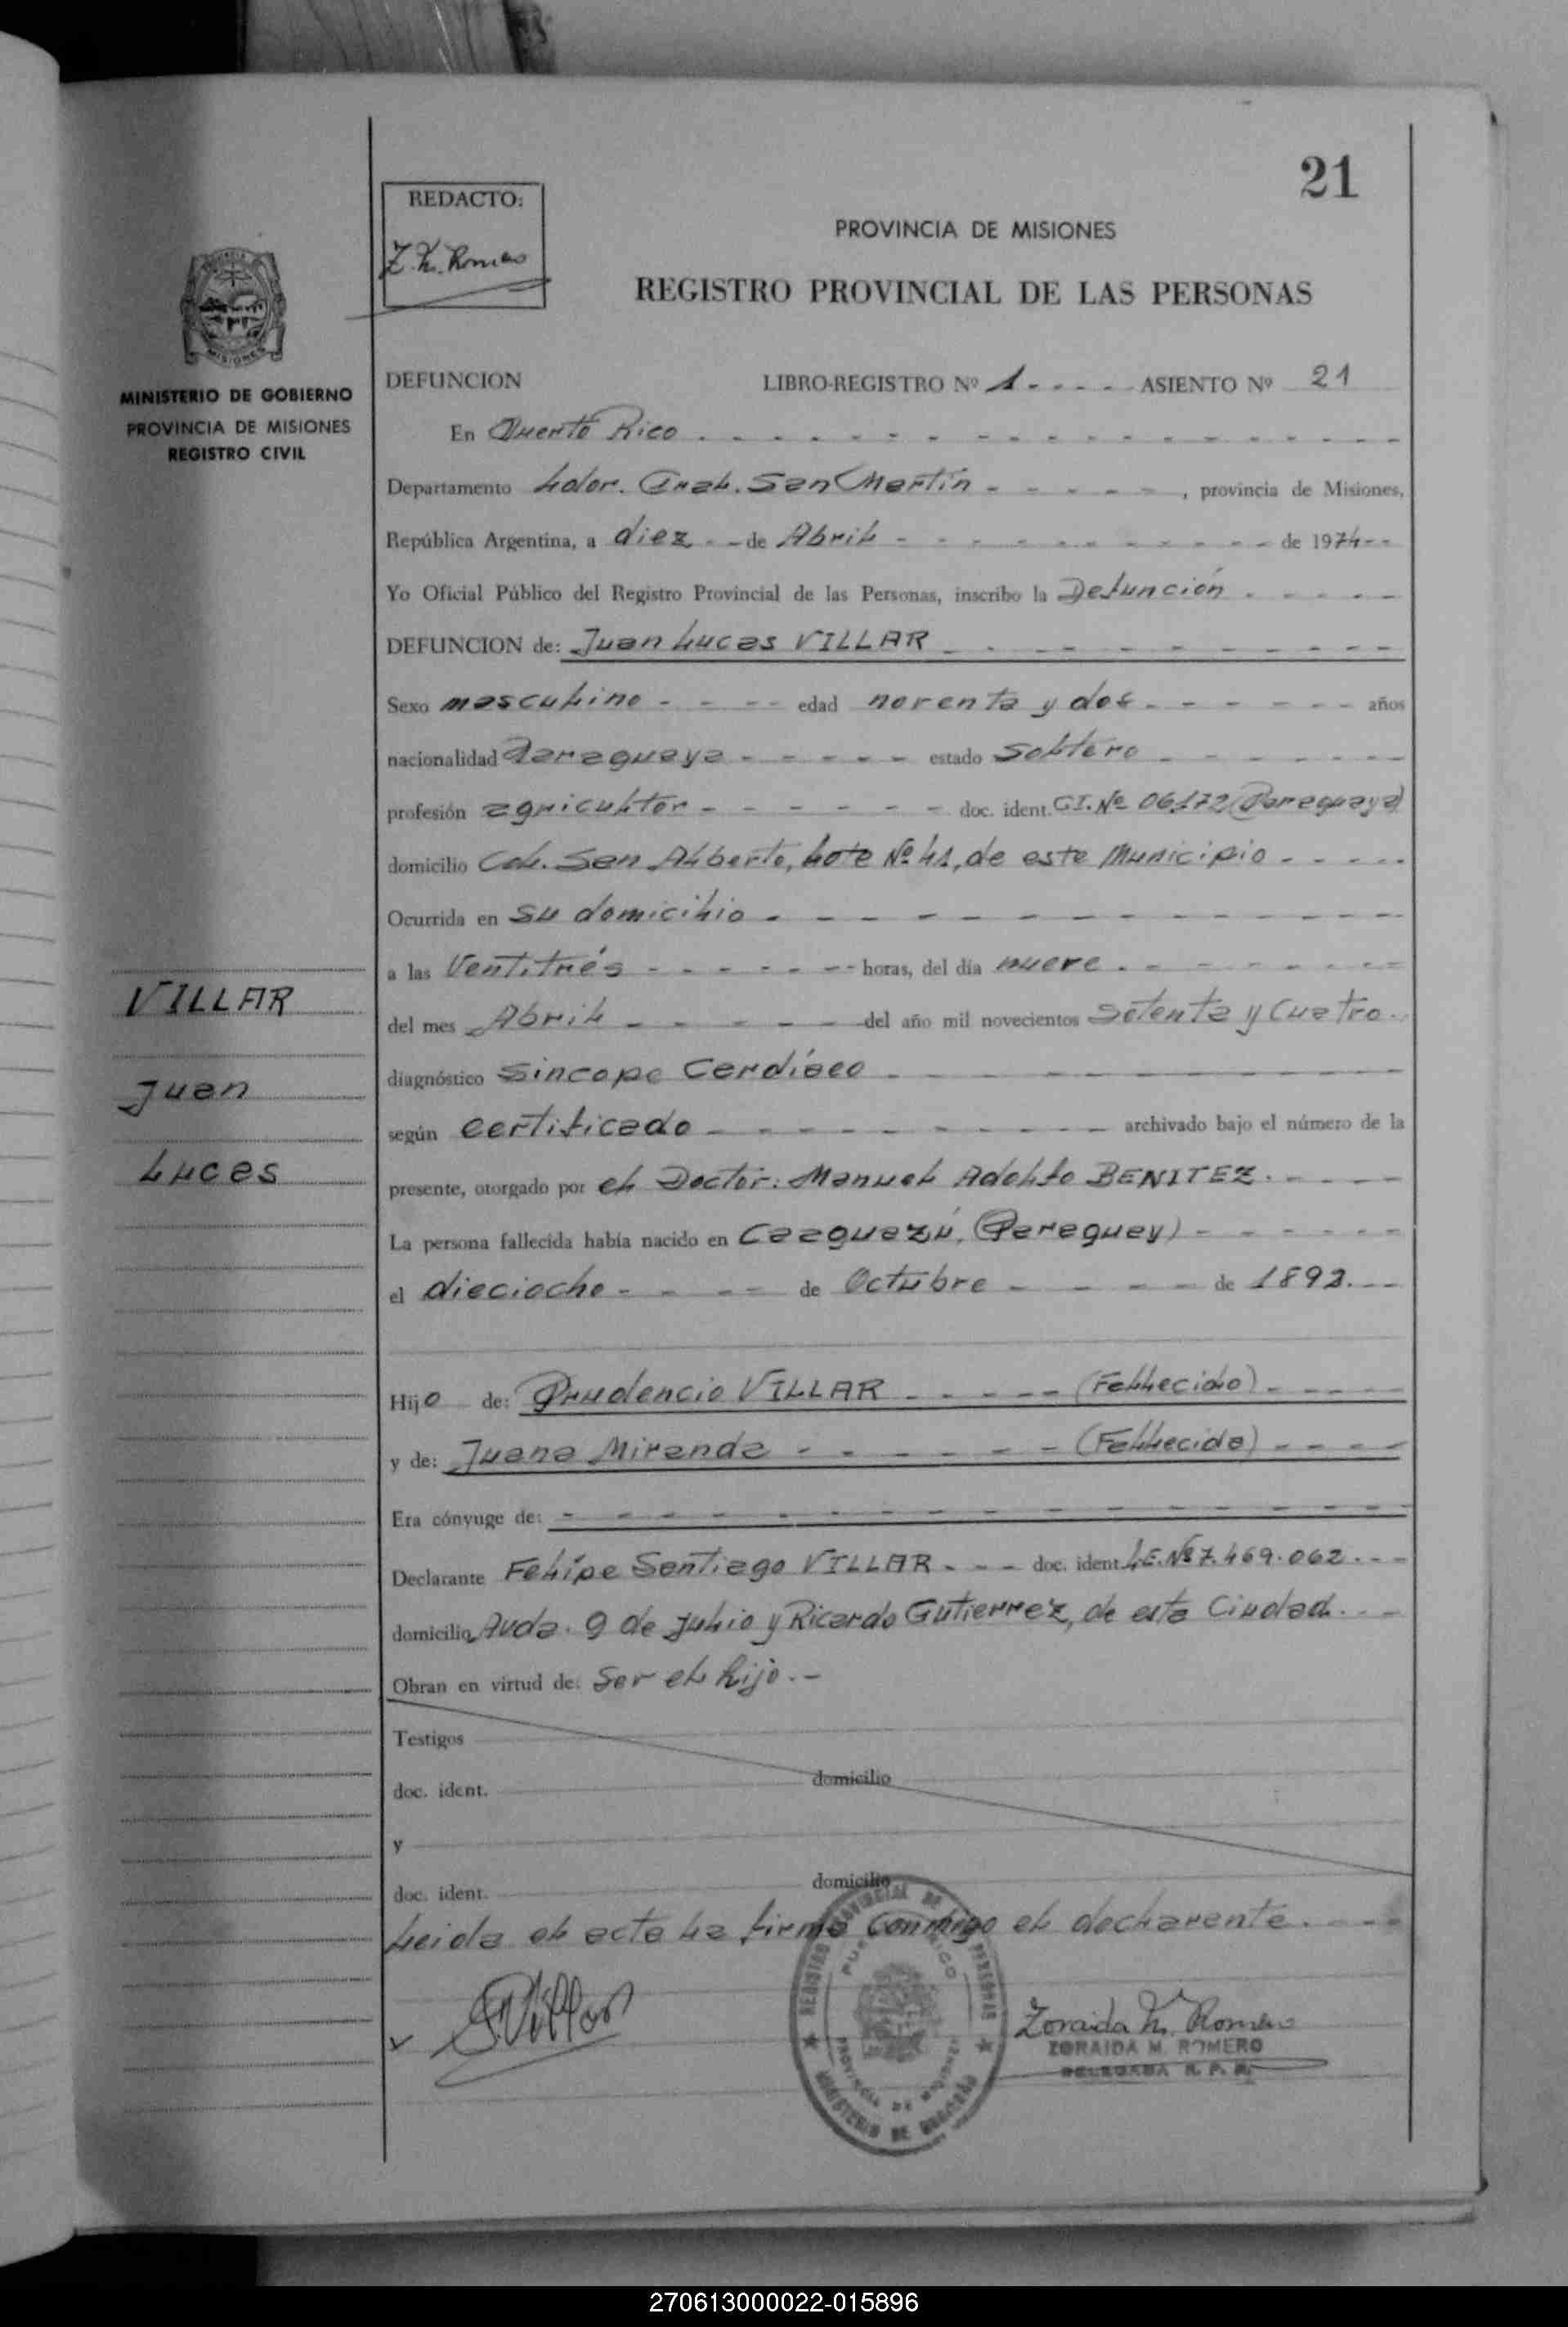 21
REDACTO:
Z. M. Romero
PROVINCIA DE MISIONES
REGISTRO PROVINCIAL DE LAS PERSONAS
MISIONES
MINISTERIO DE GOBIERNO
PROVINCIA DE MISIONES
REGISTRO CIVIL
VILLAR
Juan
Lucas
DEFUNCION LIBRO-REGISTRO Nº 1 ASIENTO Nº 21
En Puerto Rico
Departamento Ldor. Gral. San Martín, provincia de Misiones,
República Argentina, a diez de Abril de 1974
Yo Oficial Público del Registro Provincial de las Personas, inscribo la Defunción
DEFUNCION de: Juan Lucas VILLAR
Sexo masculino edad noventa y dos años
nacionalidad Paraguaya estado Soltero
profesión agricultor doc. ident. CI. Nº 06172 (Paraguaya)
domicilio Col. San Alberto, Lote Nº 41, de este Municipio
Ocurrida en su domicilio
a las Ventitrés horas, del día nueve
del mes Abril del año mil novecientos Setenta y Cuatro.
diagnóstico Sincope Cardíaco
según certificado archivado bajo el número de la
presente, otorgado por el Doctor: Manuel Adolfo BENITEZ.
La persona fallecida había nacido en Caaguazú, (Paraguay)
el dieciocho de Octubre de 1892.
Hijo de: Prudencio VILLAR (Fallecido)
y de: Juana Miranda (Fallecida)
Era cónyuge de:
Declarante Felípe Santiago VILLAR doc. ident. L.E. Nº 7.469.062.
domicilio Avda. 9 de Julio y Ricardo Gutierrez, de esta Ciudad.
Obran en virtud de: Ser el hijo.-
Testigos
doc. ident. domicilio
y
doc. ident. domicilio
Leida el acta la firma conmigo el declarante.
SVillar
REGISTRO PROVINCIAL DE LAS PERSONAS
PUERTO RICO
PROVINCIA DE MISIONES
MINISTERIO DE GOBIERNO
Zoraida M. Romero
ZORAIDA M. ROMERO
DELEGADA R. P. P.
270613000022-015896